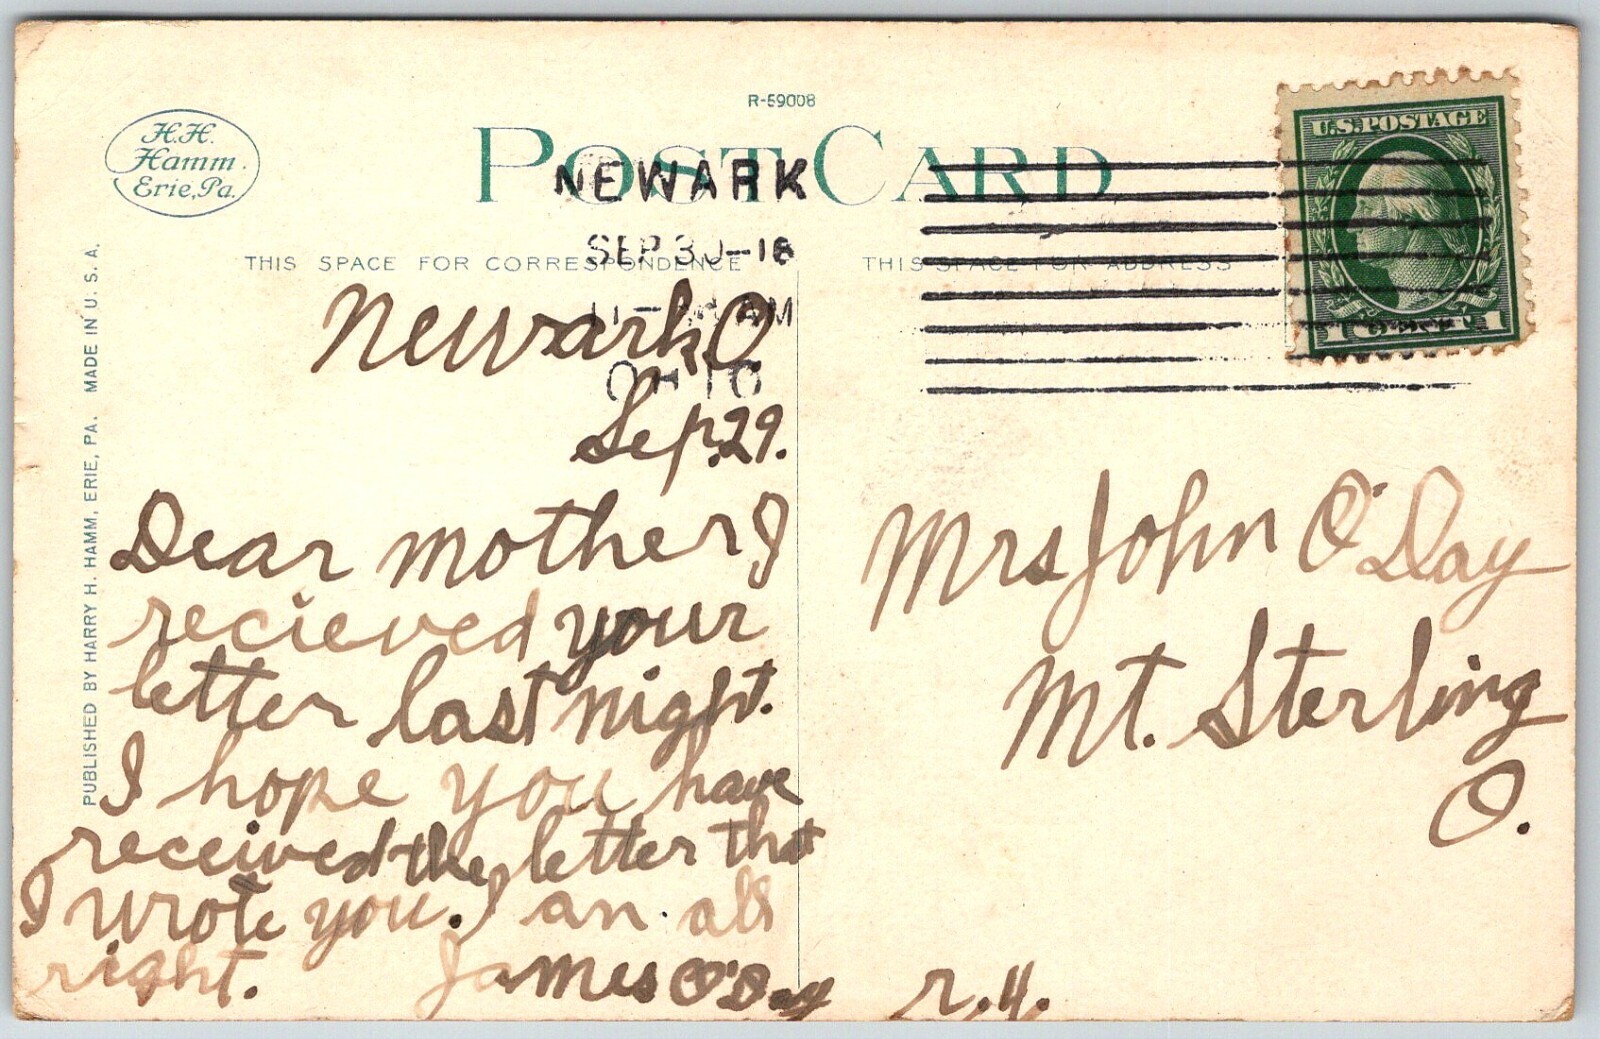 R-59008
H.H.
Hamm.
Erie, Pa.
POST CARD
NEWARK
SEP 30-16
AM
OHIO
U.S. POSTAGE
1 CENT 1
THIS SPACE FOR CORRESPONDENCE
THIS SPACE FOR ADDRESS
PUBLISHED BY HARRY H. HAMM, ERIE, PA. MADE IN U. S. A.
Newark O
Sep. 29.
Dear mother I
recieved your
letter last night.
I hope you have
received the letter that
I wrote you. I an all
right. James O'Day
Mrs John O'Day
Mt. Sterling
O.
r.4.